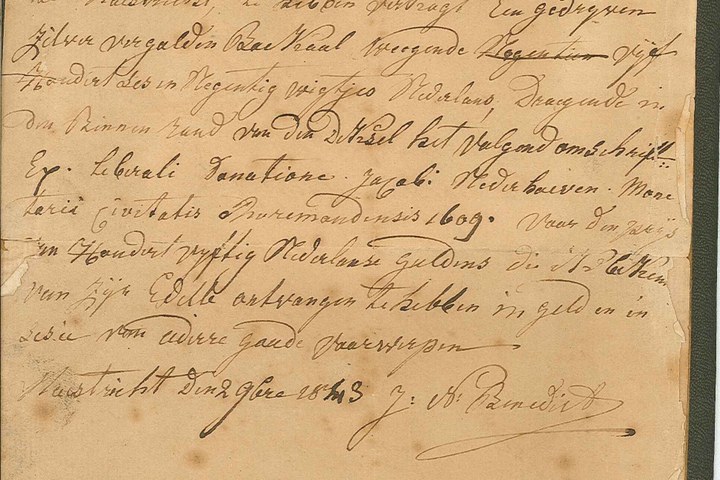 te Maestricht, te hebben verkogt Een gedreven
Zilver vergulden Boekaal weegende Negentien vyf
Hondert Ses in Negentig wigtjes Nederlans, Draegende in
den Binnen rand van den Deksel het volgend omschrift
Ex. Liberali Donatione. Jacobi Nederhoeven. Mone
tarii Civitatis Ruremondensis 1609. voor den prys
Hondert vyftig Nederlanse Guldens die ik beken
van Zijn Edele ontvangen te hebben in geld en in
van andere goude voorwerpen
Maestricht den 2 9bre 1843 J: A: Benedict